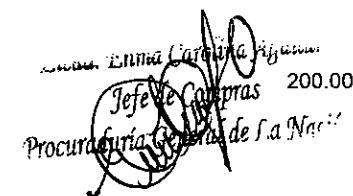 Emma Carolina
Jefe de Compras
200.00
Procuraduría General de La